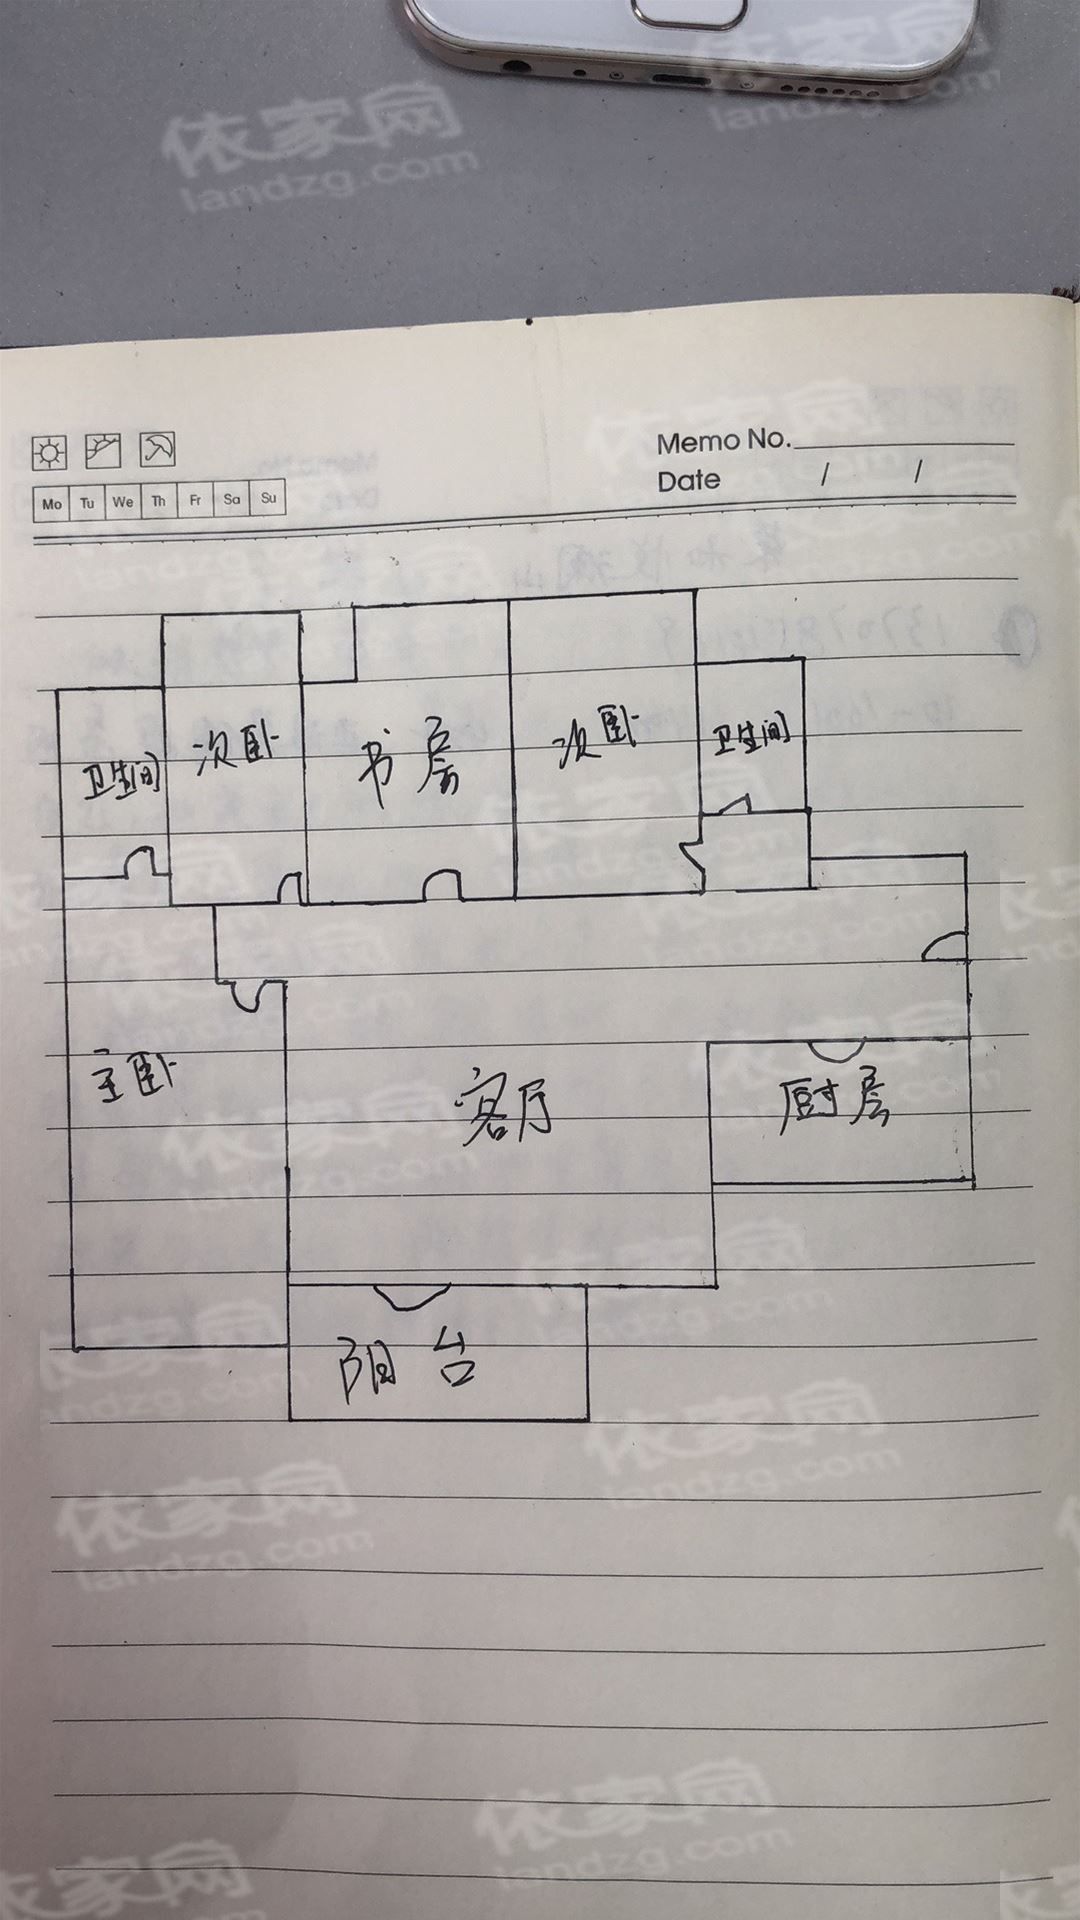 依家网
landzg.com
Memo No.
Mo Tu We Th Fr Sa Su
Date / /
次卧
书房
次卧
卫生间
卫生间
主卧
客厅
厨房
阳台